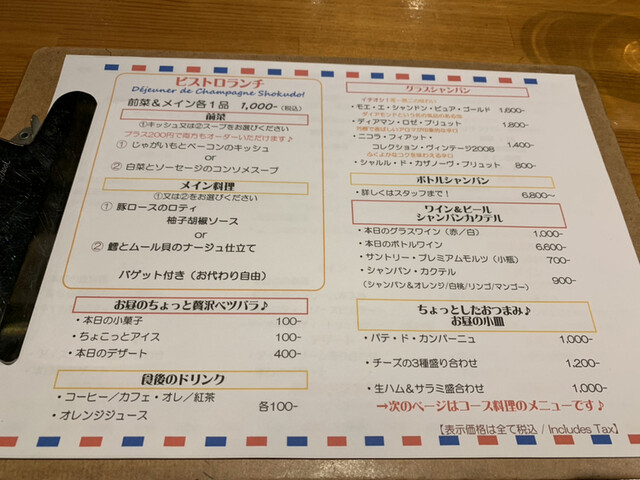 ビストロランチ
Déjeuner de Champagne Shokudo!
前菜&メイン各1品 1,000-(税込)
前菜
①キッシュ又は②スープをお選びください
プラス200円で両方もオーダーいただけます♪
① じゃがいもとベーコンのキッシュ
or
② 白菜とソーセージのコンソメスープ
メイン料理
①又は②をお選びください
① 豚ロースのロティ
柚子胡椒ソース
or
② 鱈とムール貝のナージュ仕立て
バゲット付き(お代わり自由)
お昼のちょっと贅沢ベツバラ♪
・本日の小菓子 100-
・ちょこっとアイス 100-
・本日のデザート 400-
食後のドリンク
・コーヒー/カフェ・オレ/紅茶
各100-
・オレンジジュース
グラスシャンパン
・モエ・エ・シャンドン・ピュア・ゴールド 1,600-
・ディアマン・ロゼ・ブリュット 1,800-
・ニコラ・フィアット・
コレクション・ヴィンテージ2008 1,400-
ふくよかなコクを味わえる辛口
・シャルル・ド・カザノーヴ・ブリュット 800-
ボトルシャンパン
・詳しくはスタッフまで! 6,800~
ワイン&ビール
シャンパンカクテル
・本日のグラスワイン(赤/白) 1,000-
・本日のボトルワイン 6,600-
・サントリー・プレミアムモルツ(小瓶) 700-
・シャンパン・カクテル
900-
(シャンパン&オレンジ/白桃/リンゴ/マンゴー)
ちょっとしたおつまみ♪
お昼の小皿
・パテ・ド・カンパーニュ 1,000-
・チーズの3種盛り合わせ 1,200-
・生ハム&サラミ盛合わせ 1,000-
→次のページはコース料理のメニューです♪
【表示価格は全て税込 / Includes Tax】